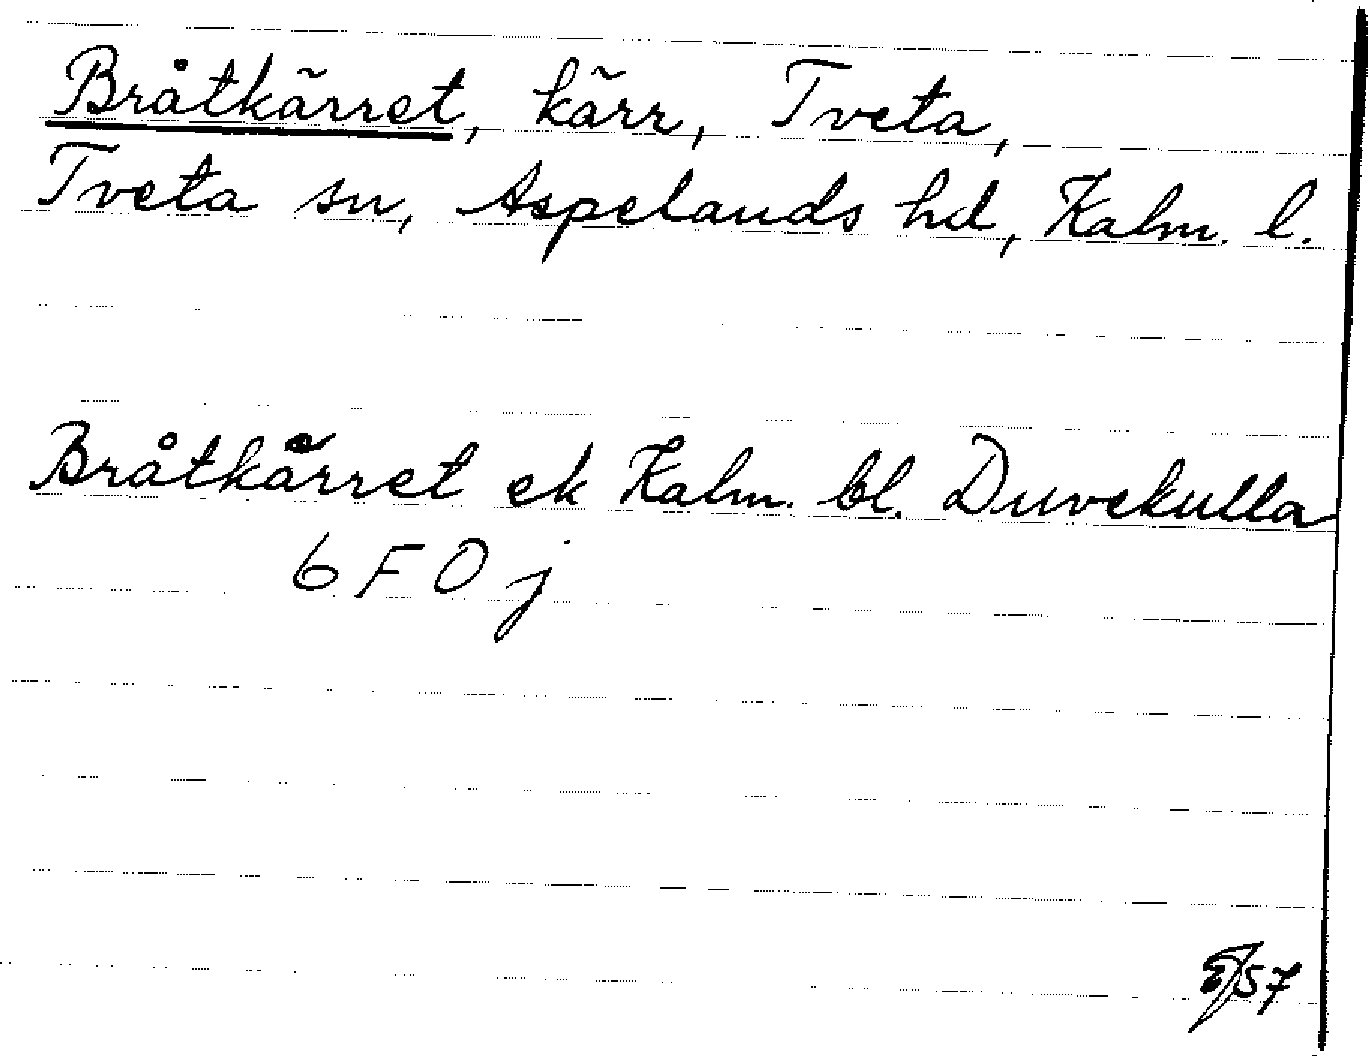 Bråtkärret, kärr, Tveta,
Tveta sn, Aspelands hd, Kalm. l.
Bråtkärret ek Kalm. bl. Duvekulla
6 F O j
/57